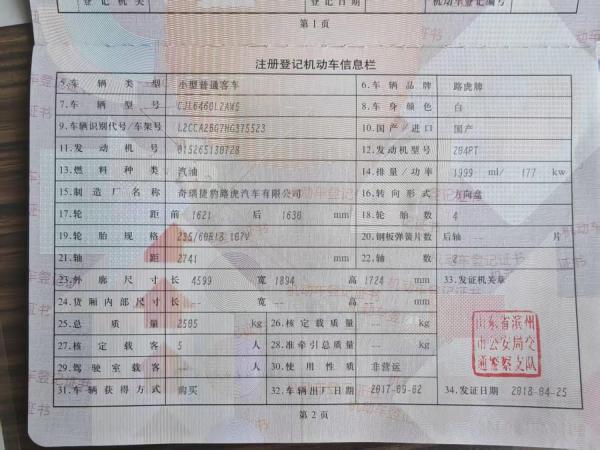 登记机关 登记日期 机动车登记编号
第1页
注册登记机动车信息栏
5.车辆类型 小型普通客车 6.车辆品牌 路虎牌
7.车辆型号 CJL6460L2AW5 8.车身颜色 白
9.车辆识别代号/车架号 L2CCA2BG7HG375523 10.国产/进口 国产
11.发动机号 12.发动机型号 204PT
13.燃料种类 汽油 14.排量/功率 1999 ml/ 177 kw
15.制造厂名称 奇瑞捷豹路虎汽车有限公司 16.转向形式 方向盘
17.轮距 前 1621 后 1630 mm 18.轮胎数 4
19.轮胎规格 235/60R18 107V 20.钢板弹簧片数 后轴 片
21.轴距 2741 mm 22.轴数 2
23.外廓尺寸 长 4599 宽 1894 高 1724 mm 33.发证机关章
24.货厢内部尺寸 长 -- 宽 -- 高 -- mm
25.总质量 2505 kg 26.核定载质量 -- kg
27.核定载客 5 人 28.准牵引总质量 -- kg
山东省滨州
市公安局交
通警察支队
29.驾驶室载客 -- 人 30.使用性质 非营运
31.车辆获得方式 购买 32.车辆出厂日期 2017-09-02 34.发证日期 2018-04-25
第2页